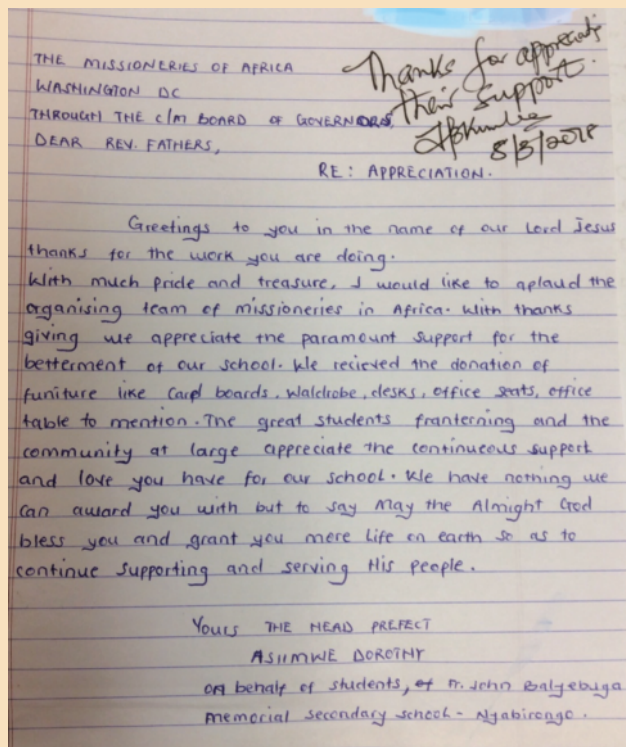 THE MISSIONERIES OF AFRICA
WASHINGTON DC
THROUGH THE C/M BOARD OF GOVERNORS,
DEAR REV. FATHERS,
Thanks for appreciating
their support.
8/3/2018
RE: APPRECIATION.
Greetings to you in the name of our Lord Jesus
thanks for the work you are doing.
With much pride and treasure, I would like to aplaud the
organising team of missioneries in Africa. With thanks
giving we appreciate the paramount support for the
betterment of our school. We recieved the donation of
funiture like Card boards, Waldrobe, desks, office seats, office
table to mention. The great students franterning and the
community at large appreciate the continueous support
and love you have for our school. We have nothing we
can award you with but to say May the Almight God
bless you and grant you more life on earth so as to
continue supporting and serving His people.
Yours THE HEAD PREFECT
ASIIMWE DOROTHY
on behalf of students, of Fr. John Balyebuga
memorial secondary school - Nyabirongo.